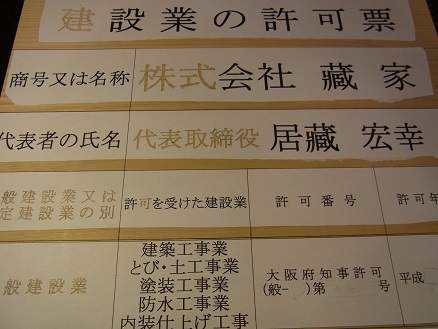 建設業の許可票
商号又は名称 株式会社 藏家
代表者の氏名 代表取締役 居藏 宏幸
般建設業又は
定建設業の別
許可を受けた建設業
許可番号
許可年
般建設業
建築工事業
とび・土工工事業
塗装工事業
防水工事業
内装仕上げ工事
大阪府知事許可
(般- )第 号
平成